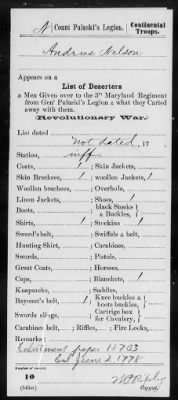 N Count Pulaski's Legion. Continental Troops.
Andrew Nelson
Appears on a
List of Deserters
& Men Given over to the 3d Maryland Regiment
from Genl Pulaski's Legion & what they Caried
away with them.
Revolutionary War.
List dated
not dated, 17
Station,
Coats, 1 Skin Jackets,
Skin Breeches, 1 woollen Jackets, 1
Woollen breeches, Overhols,
Linen Jackets, Shoes, 1
Boots, black Stocks & Buckles,
Shirts, 1 Stockins 1
Sword's belt, Swiffels & belt,
Hunting Shirt, Carabines,
Swords, Pistols,
Great Coats, Horses,
Caps, Blanckets, 1
Knepsacks, Saddles,
Bayonet's belt, 1 Knee buckles & boots buckles,
Swords slings, Cartrige box for Cavalry,
Carabine belt, Rifles, Fire Locks,
Remarks:
Enlistment paper 18703
Enl June 2, 1778
Number of record:
10
(545e) Copyist.